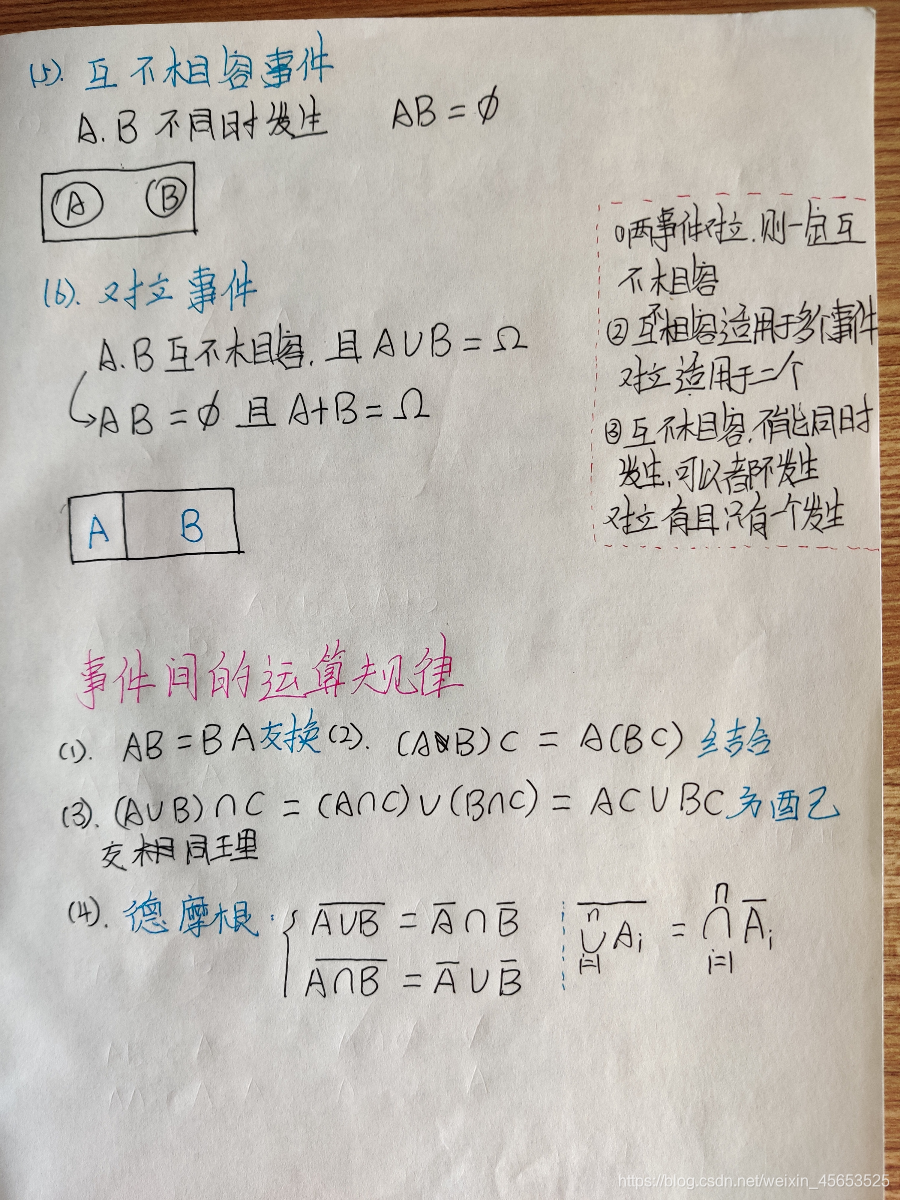 (5). 互不相容事件
A.B 不同时发生 AB = ∅
A B
(6). 对立事件
A.B 互不相容, 且 A∪B = Ω
AB = ∅ 且 A+B = Ω
A B
①两事件对立.则一定互
不相容
②互不相容适用于多个事件
对立适用于二个
③互不相容.不能同时
发生,可以都不发生
对立有且只有一个发生
事件间的运算规律
(1). AB = BA 交换 (2). (AB)C = A(BC) 结合
(3). (A∪B)∩C = (A∩C)∪(B∩C) = AC∪BC 分配
交相同理
(4). 德摩根: { \overline{A∪B} = \overline{A}∩\overline{B} \overline{\bigcup_{i=1}^{n} A_i} = \bigcap_{i=1}^{n} \overline{A}_i
\overline{A∩B} = \overline{A}∪\overline{B}
https://blog.csdn.net/weixin_45653525